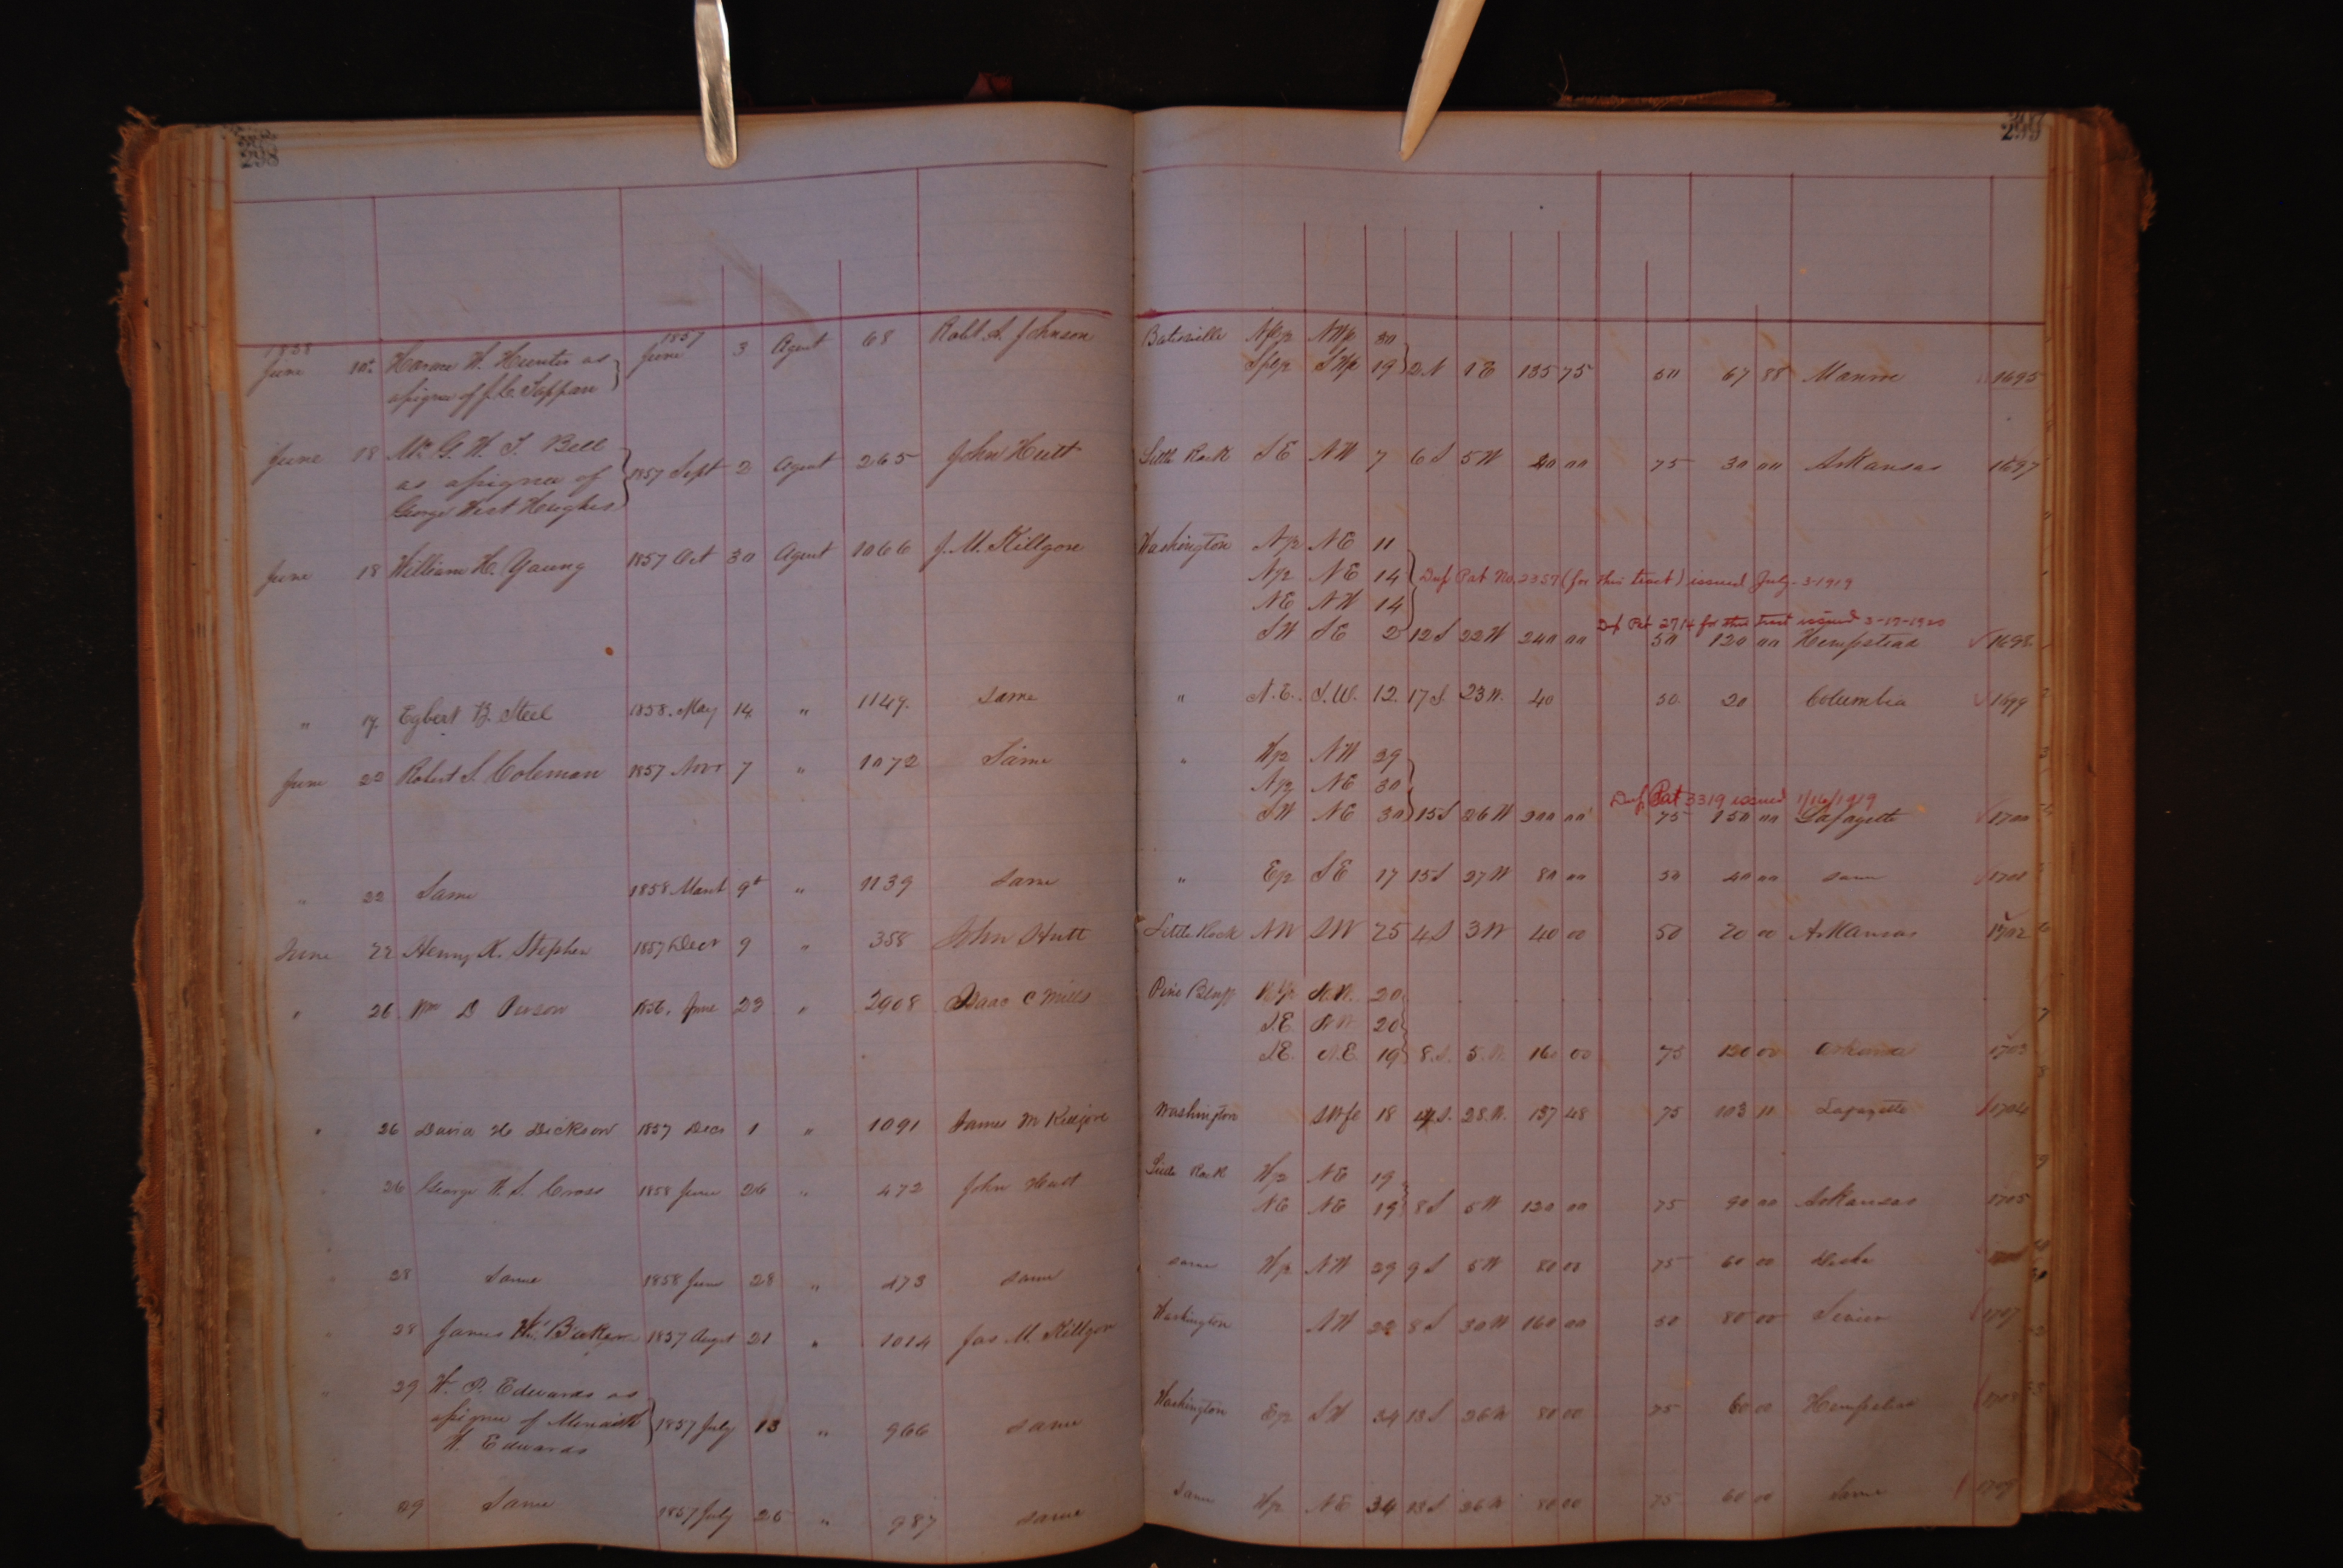 298
299
1858
June 10th Horace W. Hunter as 1857 June 3 Agent 68 Robt. A. Johnson Batesville NE½ NW½ 30
assignee of J. C. Tappan SE½ SW½ 19 2N 1E 135 75 50 67 88 Monroe 1695
June 18 Mc G. H. T. Bell
as assignee of 1857 Sept 2 Agent 265 John Hutt Little Rock SE NW 7 6S 5W 40 00 75 30 00 Arkansas 1697
George West Hughes
June 18 William H. Young 1857 Oct 30 Agent 1066 J. M. Killgore Washington N½ NE 11
N½ NE 14 Dup Pat No. 2357 (for this tract) issued July-3-1919
NE NW 14
Dup Pat 2714 for this tract issued 3-17-1920
SW SE 2 12S 22W 240 00 50 120 00 Hempstead 1698
" 17 Egbert B. Steel 1858. May 14 " 1149. same " N.E. S.W. 12. 17S. 23W. 40 50 20 Columbia 1699
June 22 Robert S. Coleman 1857 Novr 7 " 1072 Same " W½ NW 29
N½ NE 30
Dup Pat 3319 issued 1/16/1919
SW NE 30 15S 26W 200 00 75 150 00 Lafayette 1700
" 22 Same 1858 March 9th " 1139 same " E½ SE 17 15S 27W 80 00 50 40 00 same 1701
June 22 Henry K. Stephen 1857 Decr 9 " 358 John Hutt Little Rock NW SW 25 4S 3W 40 00 50 20 00 Arkansas 1702
" 26 Wm D 1856. June 23 " 2908 Isaac C Mills Pine Bluff 20
S.E. 20
S.E. 19 8.S. 5.W. 160 00 75 120 00 Arkansas 1703
" 26 David H Dickson 1857 Decr 1 " 1091 James M Killgore Washington 18 28.W. 137 48 75 103 11 Lafayette 1704
26 George W. S. Cross 1858 June 26 " 472 John Hutt Little Rock W½ NE 19
NE NE 19 8S 5W 120 00 75 90 00 Arkansas 1705
28 Same 1858 June 28 " 473 same same W½ NW 29 9S 5W 80 00 75 60 00
" 28 James Wm. 1857 August 21 " 1014 Jas M. Killgore Washington NW 22 8S 30W 160 00 50 80 00 Sevier 1707
" 29 W. P. Edwards as
assignee of 1857 July 13 " 966 same Washington E½ SW 34 13S 26W 80 00 75 60 00 Hempstead 1708
W. Edwards
29 Same 1857 July 25 " 987 same Same W½ NE 34 13S 26W 80 00 75 60 00 Same 1709